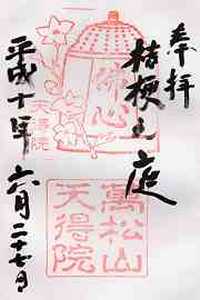 奉拝
桔梗之庭
佛心
天得院
平成十年六月二十七日
萬松山
天得院